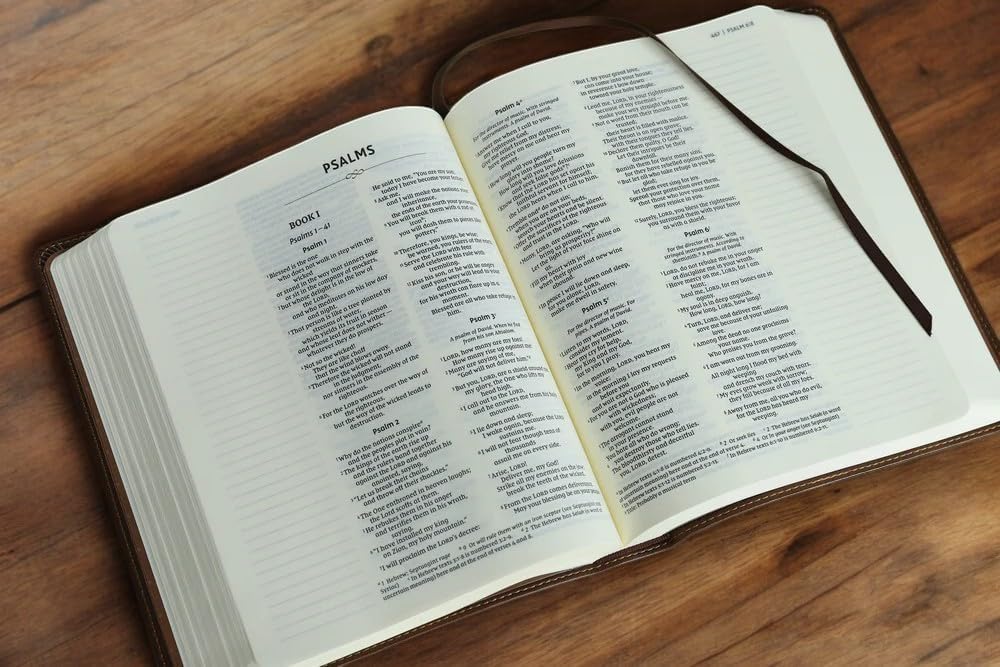 PSALMS
BOOK I
Psalms 1–41
Psalm 1
¹Blessed is the one
who does not walk in step with the
wicked
or stand in the way that sinners take
or sit in the company of mockers,
²but whose delight is in the law of
the LORD,
and who meditates on his law day
and night.
³That person is like a tree planted by
streams of water,
which yields its fruit in season
and whose leaf does not wither—
whatever they do prospers.
⁴Not so the wicked!
They are like chaff
that the wind blows away.
⁵Therefore the wicked will not stand
in the judgment,
nor sinners in the assembly of the
righteous.
⁶For the LORD watches over the way of
the righteous,
but the way of the wicked leads to
destruction.
Psalm 2
¹Why do the nations conspire
and the peoples plot in vain?
²The kings of the earth rise up
and the rulers band together
against the LORD and against his
anointed, saying,
³"Let us break their chains
and throw off their shackles."
⁴The One enthroned in heaven laughs;
the Lord scoffs at them.
⁵He rebukes them in his anger
and terrifies them in his wrath,
saying,
⁶"I have installed my king
on Zion, my holy mountain."
⁷I will proclaim the LORD's decree:
He said to me, "You are my son;
today I have become your father.
⁸Ask me,
and I will make the nations your
inheritance,
the ends of the earth your possession.
⁹You will break them with a rod of
iron;
you will dash them to pieces like
pottery."
¹⁰Therefore, you kings, be wise;
be warned, you rulers of the earth.
¹¹Serve the LORD with fear
and celebrate his rule with
trembling.
¹²Kiss his son, or he will be angry
and your way will lead to your
destruction,
for his wrath can flare up in a
moment.
Blessed are all who take refuge in
him.
Psalm 3
A psalm of David. When he fled
from his son Absalom.
¹LORD, how many are my foes!
How many rise up against me!
²Many are saying of me,
"God will not deliver him."
³But you, LORD, are a shield around me,
my glory, the One who lifts my
head high.
⁴I call out to the LORD,
and he answers me from his holy
mountain.
⁵I lie down and sleep;
I wake again, because the LORD
sustains me.
⁶I will not fear though tens of
thousands
assail me on every side.
⁷Arise, LORD!
Deliver me, my God!
Strike all my enemies on the jaw;
break the teeth of the wicked.
⁸From the LORD comes deliverance.
May your blessing be on your people.
1 Hebrew; Septuagint rage
9 Or will rule them with an iron scepter (see Septuagint and
Syriac)
In Hebrew texts 3:1-8 is numbered 3:2-9.
2 The Hebrew has Selah (a word of
uncertain meaning) here and at the end of verses 4 and 8.
447 | PSALM 6:8
Psalm 4
For the director of music. With stringed
instruments. A psalm of David.
¹Answer me when I call to you,
my righteous God.
Give me relief from my distress;
have mercy on me and hear my
prayer.
²How long will you people turn my
glory into shame?
How long will you love delusions
and seek false gods?
³Know that the LORD has set apart his
faithful servant for himself;
the LORD hears when I call to him.
⁴Tremble and do not sin;
when you are on your beds,
search your hearts and be silent.
⁵Offer the sacrifices of the righteous
and trust in the LORD.
⁶Many, LORD, are asking, "Who will
bring us prosperity?"
Let the light of your face shine on
us.
⁷Fill my heart with joy
when their grain and new wine
abound.
⁸In peace I will lie down and sleep,
for you alone, LORD,
make me dwell in safety.
Psalm 5
For the director of music. For
pipes. A psalm of David.
¹Listen to my words, LORD,
consider my lament.
²Hear my cry for help,
my King and my God,
for to you I pray.
³In the morning, LORD, you hear my
voice;
in the morning I lay my requests
before you
and wait expectantly.
⁴For you are not a God who is pleased
with wickedness;
with you, evil people are not
welcome.
⁵The arrogant cannot stand
in your presence.
You hate all who do wrong;
⁶you destroy those who tell lies.
The bloodthirsty and deceitful
you, LORD, detest.
⁷But I, by your great love,
can come into your house;
in reverence I bow down
toward your holy temple.
⁸Lead me, LORD, in your righteousness
because of my enemies—
make your way straight before me.
⁹Not a word from their mouth can be
trusted;
their heart is filled with malice.
Their throat is an open grave;
with their tongues they tell lies.
¹⁰Declare them guilty, O God!
Let their intrigues be their
downfall.
Banish them for their many sins,
for they have rebelled against you.
¹¹But let all who take refuge in you be
glad;
let them ever sing for joy.
Spread your protection over them,
that those who love your name
may rejoice in you.
¹²Surely, LORD, you bless the righteous;
you surround them with your favor
as with a shield.
Psalm 6
For the director of music. With
stringed instruments. According to
sheminith. A psalm of David.
¹LORD, do not rebuke me in your anger
or discipline me in your wrath.
²Have mercy on me, LORD, for I am
faint;
heal me, LORD, for my bones are in
agony.
³My soul is in deep anguish.
How long, LORD, how long?
⁴Turn, LORD, and deliver me;
save me because of your unfailing
love.
⁵Among the dead no one proclaims
your name.
Who praises you from the grave?
⁶I am worn out from my groaning.
All night long I flood my bed with
weeping
and drench my couch with tears.
⁷My eyes grow weak with sorrow;
they fail because of all my foes.
⁸Away from me, all you who do evil,
for the LORD has heard my
weeping.
In Hebrew texts 4:1-8 is numbered 4:2-9.
2 Or seek lies
2 The Hebrew has Selah (a word
of uncertain meaning) here and at the end of verse 4.
4 Or In your anger (see Septuagint)
In Hebrew texts 5:1-12 is numbered 5:2-13.
In Hebrew texts 6:1-10 is numbered 6:2-11.
Title: Probably a musical term